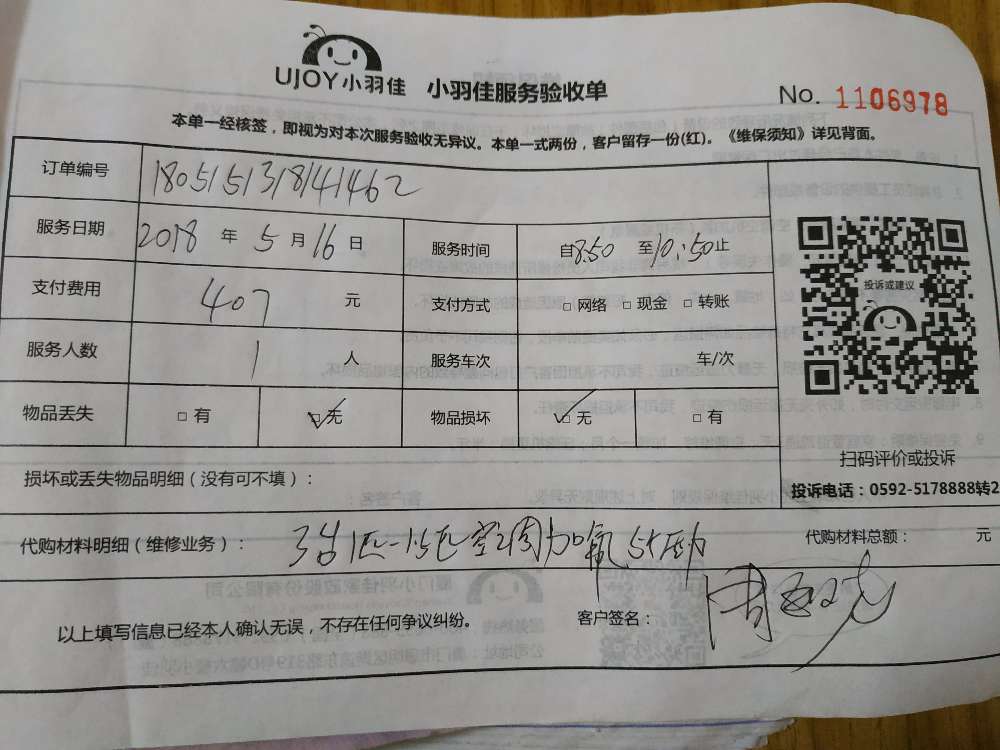 UJOY小羽佳 小羽佳服务验收单 No. 1106978
本单一经核签，即视为对本次服务验收无异议。本单一式两份，客户留存一份(红)。《维保须知》详见背面。
订单编号 180515318141462
服务日期 2018 年 5 月 16 日 服务时间 自8:50 至10:50止
支付费用 407 元 支付方式 □ 网络 □ 现金 □ 转账
服务人数 1 人 服务车次 车/次
物品丢失 □ 有 □ 无 物品损坏 □ 无 □ 有
投诉或建议
扫码评价或投诉
投诉电话：0592-5178888转2
损坏或丢失物品明细（没有可不填）：
代购材料明细（维修业务）： 3台1匹-1.5匹空调加氟 代购材料总额： 元
以上填写信息已经本人确认无误，不存在任何争议纠纷。 客户签名：